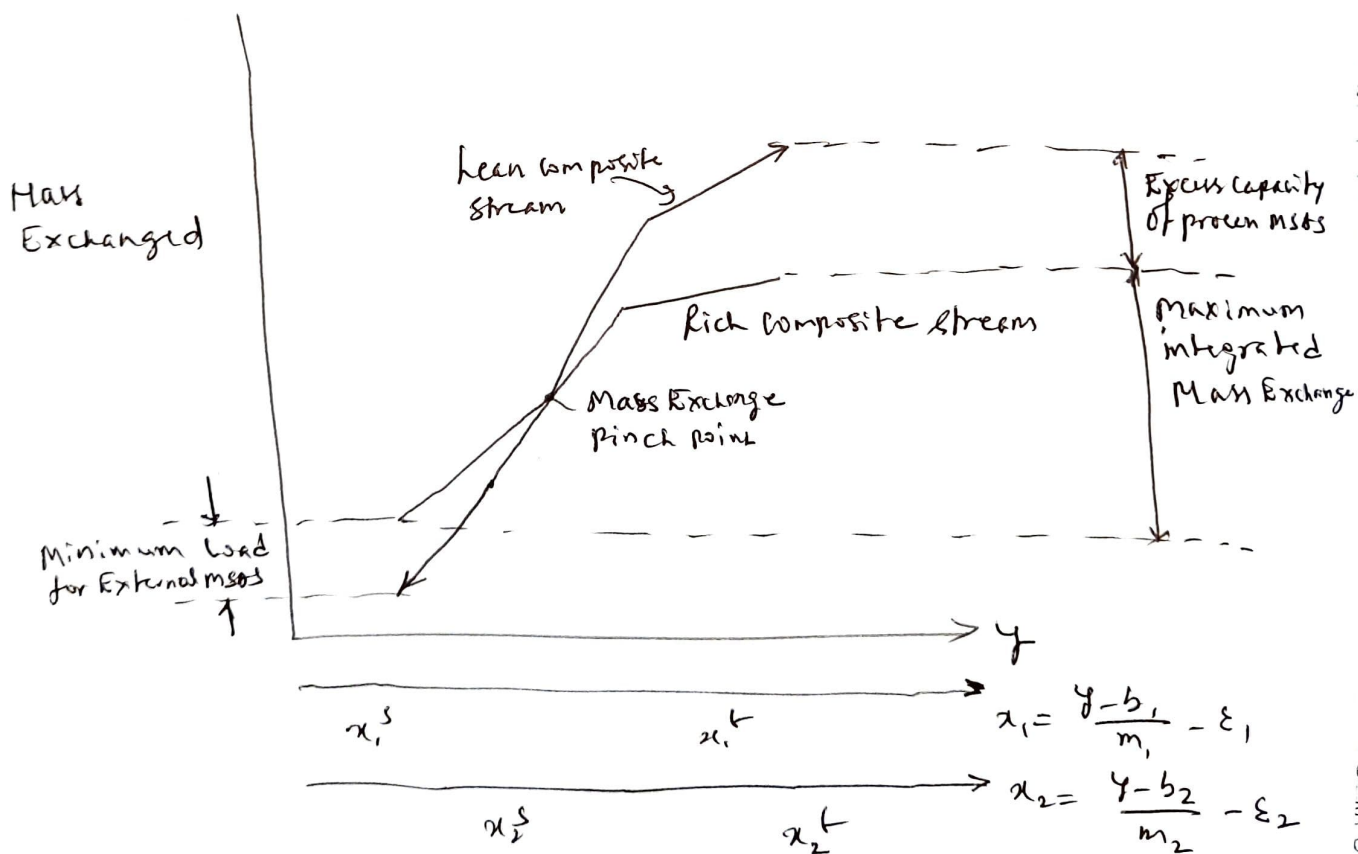 Mass
Exchanged
Lean composite
stream
Excess Capacity
of process MSAs
Rich composite stream
Maximum
integrated
Mass Exchange
Mass Exchange
Pinch Point
Minimum Load
for External MSAs
y
x₁ˢ
x₁ᵗ
x₁ = y-b₁/m₁ - ε₁
x₂ˢ
x₂ᵗ
x₂ = y-b₂/m₂ - ε₂